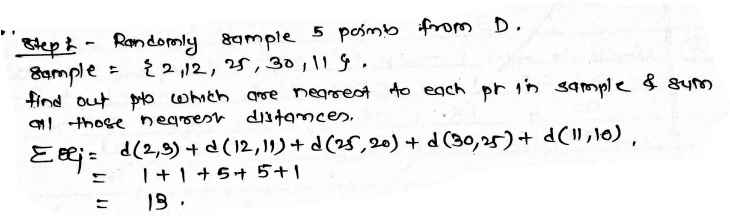 Step 2 - Randomly sample 5 points from D.
Sample = {2,12, 25, 30, 11}.
find out pts which are nearest to each pt in sample & sum
all those nearest distances.
Σ xj = d(2,3) + d(12,11) + d(25,20) + d(30,25) + d(11,10),
= 1 + 1 + 5 + 5 + 1
= 13.